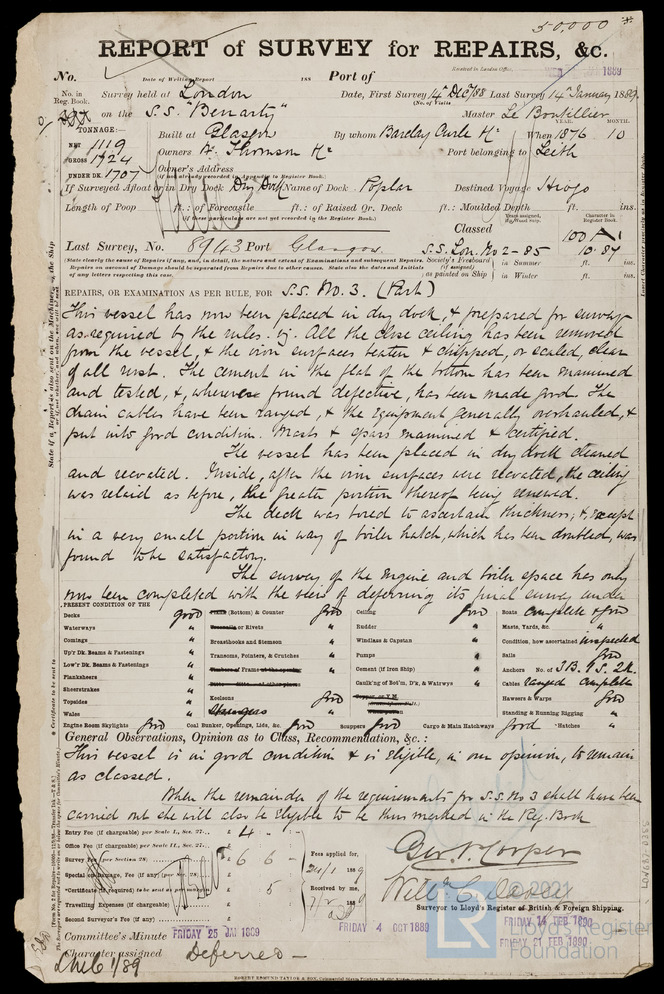 50,000
REPORT of SURVEY for REPAIRS, &c.
No.
Date of Writing Report 188
Port of
Received in London Office
1889
No. in Reg. Book.
Survey held at London
Date, First Survey 14th Dec/88 Last Survey 14th January 1889
(No. of Visits
on the S.S. "Benarty"
Master Le Boutillier
TONNAGE:—
NET 1119
GROSS 1724
UNDER DK. 1707
Built at Glasgow By whom Barclay Curle & Co When 1876 MONTH. 10
YEAR.
Owners W. Thomson & Co Port belonging to Leith
Owner's Address
(if not already recorded in Appendix to Register Book.)
If Surveyed Afloat or in Dry Dock Dry Dock Name of Dock Poplar Destined Voyage Hiogo
Length of Poop ft. : of Forecastle ft. : of Raised Qr. Deck ft. : Moulded Depth ft. ins.
(if these particulars are not yet recorded in the Register Book.)
Classed 100 A 1
Character in Register Book.
Last Survey, No. 8943 Port Glasgow S.S. Lon. No 2 - 85 10.87
(State clearly the cause of Repairs if any, and, in detail, the nature and extent of Examinations and subsequent Repairs.
Repairs on account of Damage should be separated from Repairs due to other causes. State also the dates and Initials
of any letters respecting this case.)
Society's Freeboard (if assigned) as painted on Ship
in Summer ft. ins.
in Winter ft. ins.
REPAIRS, OR EXAMINATION AS PER RULE, FOR S.S. No. 3. (Part)
This vessel has now been placed in dry dock, & prepared for survey
as required by the rules. viz. All the close ceiling has been removed
from the vessel, & the iron surfaces beaten & chipped, or scaled, clear
of all rust. The cement in the flat of the bottom has been examined
and tested, &, wherever found defective, has been made good. The
chain cables have been ranged, & the equipment generally overhauled, &
put into good condition. Masts & spars examined & certified.
The vessel has been placed in dry dock cleaned
and recoated. Inside, after the iron surfaces were recoated, the ceiling
was relaid as before, the greater portion thereof being renewed.
The deck was bored to ascertain thickness; &, except
in a very small portion in way of boiler hatch, which has been doubled, was
found to be satisfactory.
The survey of the Engine and boiler space has only
now been completed with the view of deferring its final survey under
PRESENT CONDITION OF THE
Decks good
Waterways "
Comings "
Up'r Dk. Beams & Fastenings "
Low'r Dk. Beams & Fastenings "
Planksheers "
Sheerstrakes "
Topsides "
Wales "
Engine Room Skylights good
(Bottom) & Counter good
or Rivets "
Breasthooks and Stemson "
Transoms, Pointers, & Crutches "
Keelsons good
Stringers "
Coal Bunker, Openings, Lids, &c. good
Ceiling good
Rudder "
Windlass & Capstan "
Pumps "
Cement (if Iron Ship) "
Caulk'ng of Bot'm, D'k, & Wat'rwys "
Scuppers good Cargo & Main Hatchways Good
Boats complete & good
Masts, Yards, &c. "
Condition, how ascertained inspected
Sails good
Anchors No. of 3 B. 1 S. 2 K.
Cables ranged complete
Hawsers & Warps good
Standing & Running Rigging "
Hatches "
General Observations, Opinion as to Class, Recommendation, &c. :
This vessel is in good condition & is eligible, in our opinion, to remain
as classed.
When the remainder of the requirements for S.S. No 3 shall have been
carried out she will also be eligible to be thus marked in the Reg. Book
Entry Fee (if chargeable) per Scale I., Sec. 27... £ 4
Office Fee (if chargeable) per Scale II., Sec. 27... £
Survey Fee (per Section 28) £ 6 6 -
Special or Damage, Fee (if any) (per Sec. 28) £
Certificate (if required) to be sent as per margin 5
Travelling Expenses (if chargeable) £
Second Surveyor's Fee (if any) £
Fees applied for, 24/1 1889
Received by me, 188
Geo. V. Cooper
Surveyor to Lloyd's Register of British & Foreign Shipping.
Committee's Minute FRIDAY 25 JAN 1889 FRIDAY 4 OCT 1889 FRIDAY 14 FEB 1890
FRIDAY 21 FEB 1890
Character assigned Deferred -
LMC 1/89
ROBERT EDMUND TAYLOR & SON
© 2021
LR
Lloyd's Register
Foundation